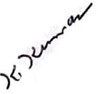 K. Kumar